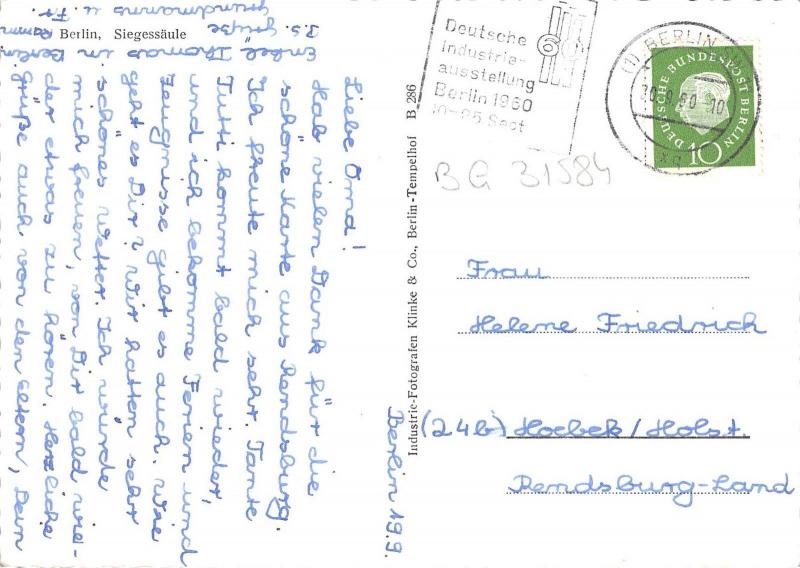 Berlin, Siegessäule
Liebe Oma!
Hab vielen Dank für die
schöne Karte aus Rendsburg.
Ich freute mich sehr. Tante
Tutti kommt bald wieder,
und ich bekomme Ferien und
Zeugnisse gibt es auch. Wie
geht es Dir? Wir hatten sehr
schönes Wetter. Ich würde
mich freuen, von Dir bald wie-
der etwas zu hören. Herzliche
Grüße auch von den Eltern, Dein
Enkel Thomas in Berlin
P.S. Grüße
Grundmanns u. Fr.
Berlin 19.9.
Industrie-Fotografen Klinke & Co., Berlin-Tempelhof B 286
Deutsche
Industrie-
ausstellung
Berlin 1960
10-25 Sept
(1) BERLIN
DEUTSCHE BUNDESPOST BERLIN
10
BG 31584
Frau
Helene Friedrich
(24b) Hoebek/Holst.
Rendsburg-Land